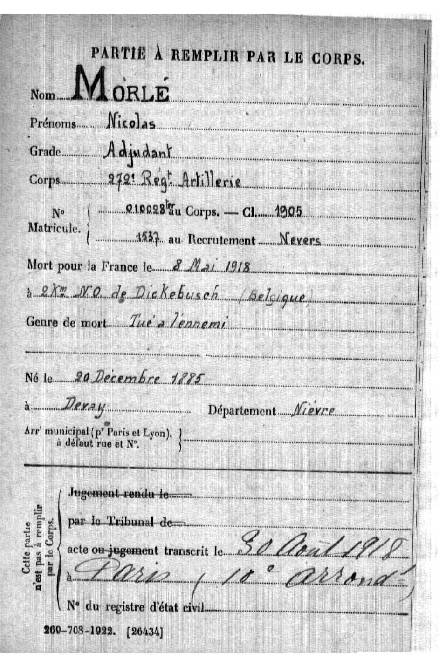 PARTIE À REMPLIR PAR LE CORPS.
Nom MORLÉ
Prénoms Nicolas
Grade Adjudant
Corps 272e Régt Artillerie
No Matricule. 010028 bis au Corps. — Cl. 1905
1537 au Recrutement Nevers
Mort pour la France le 8 Mai 1918
à 2Km N.O. de Dickebusch (Belgique)
Genre de mort Tué a l'ennemi
Né le 20 Décembre 1885
à Devay Département Nièvre
Arrt municipal (pr Paris et Lyon),
à défaut rue et No.
Cette partie
n'est pas à remplir
par le Corps.
Jugement rendu le
par le Tribunal de
acte ou jugement transcrit le 30 Août 1918
à Paris (10e arrondt)
No du registre d'état civil
260-708-1922. [26434]